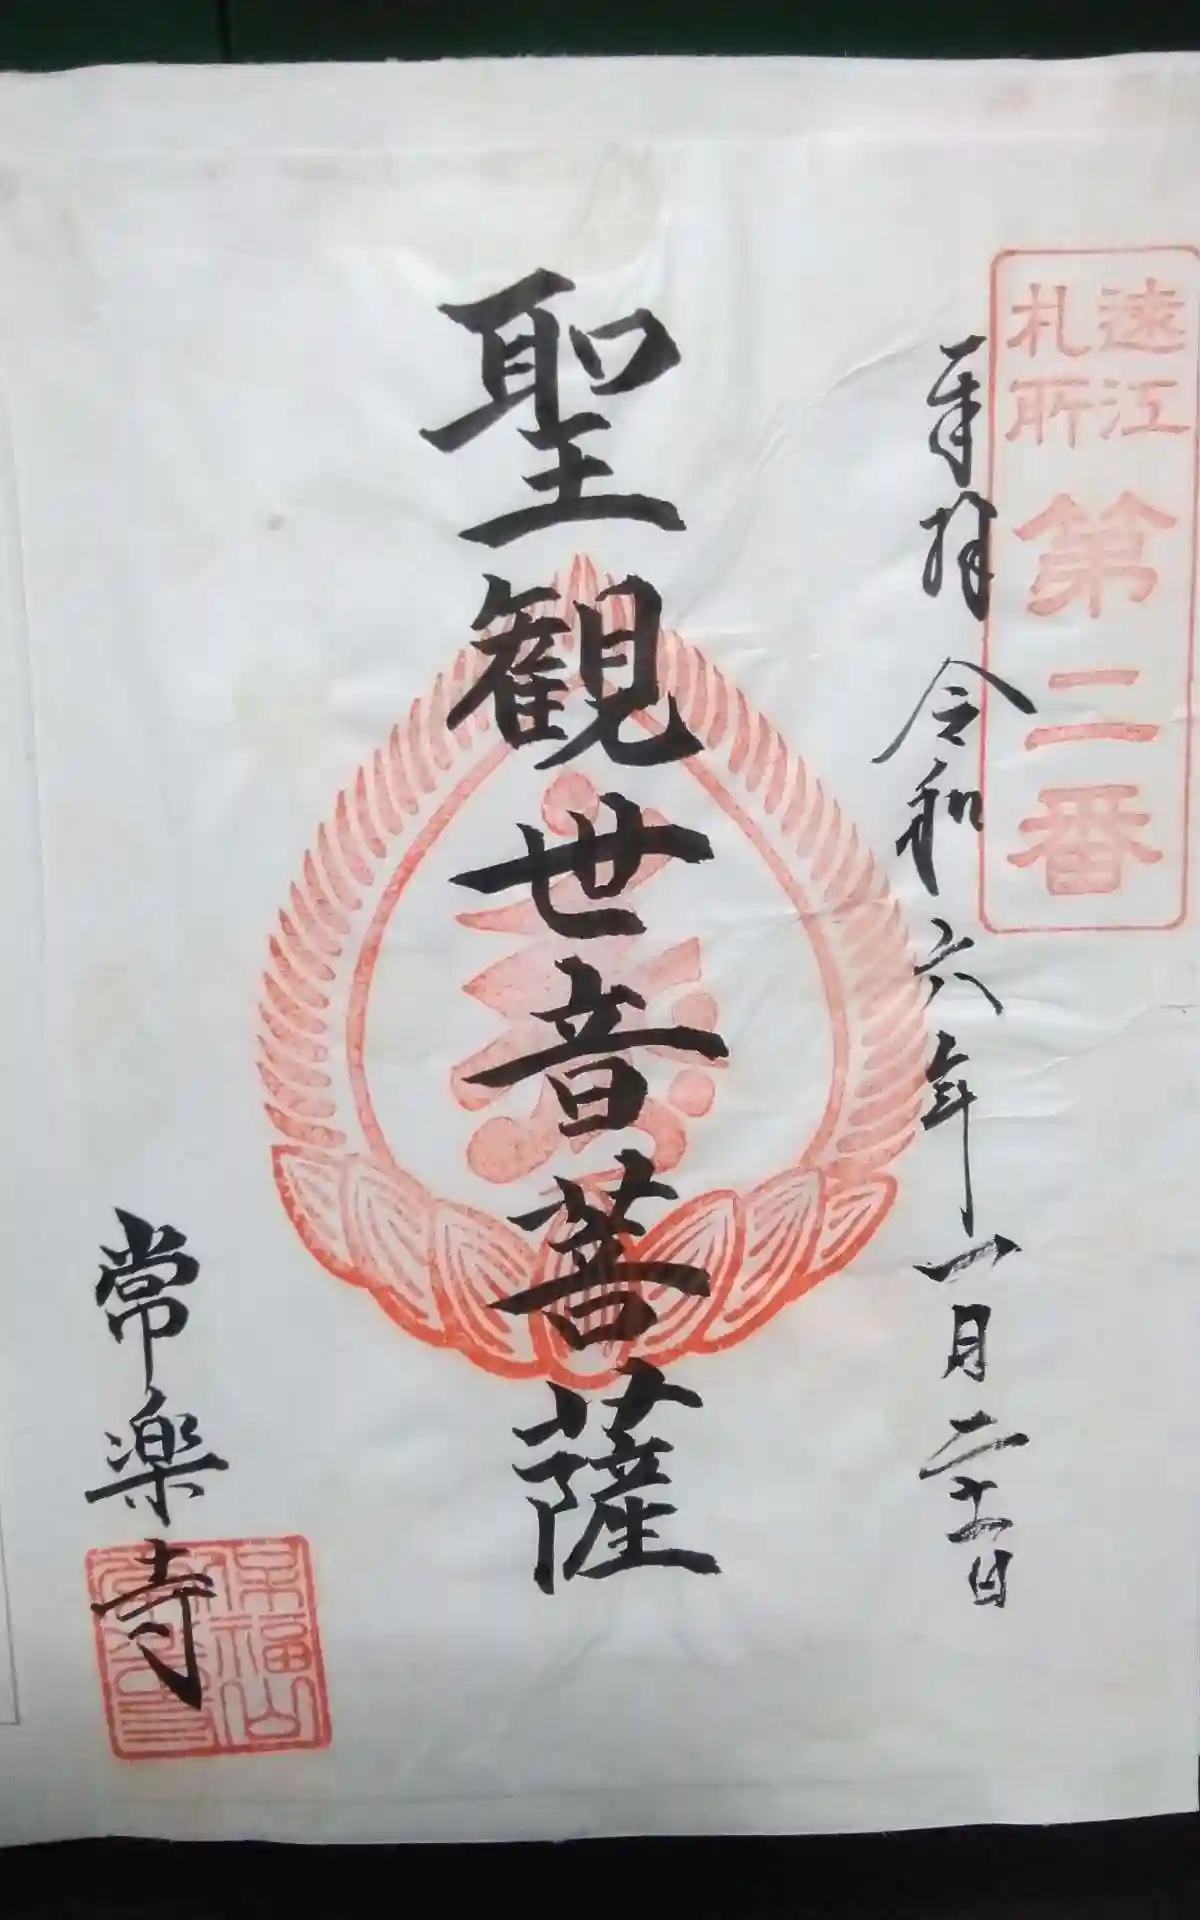 遠江
札所
第二番
奉拝
令和六年一月二十五日
聖観世音菩薩
常楽寺
保福山